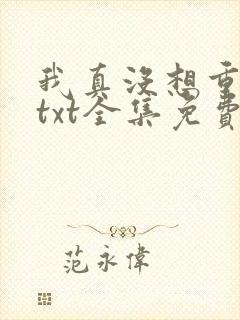 我真沒想重
txt全集免費
范永偉